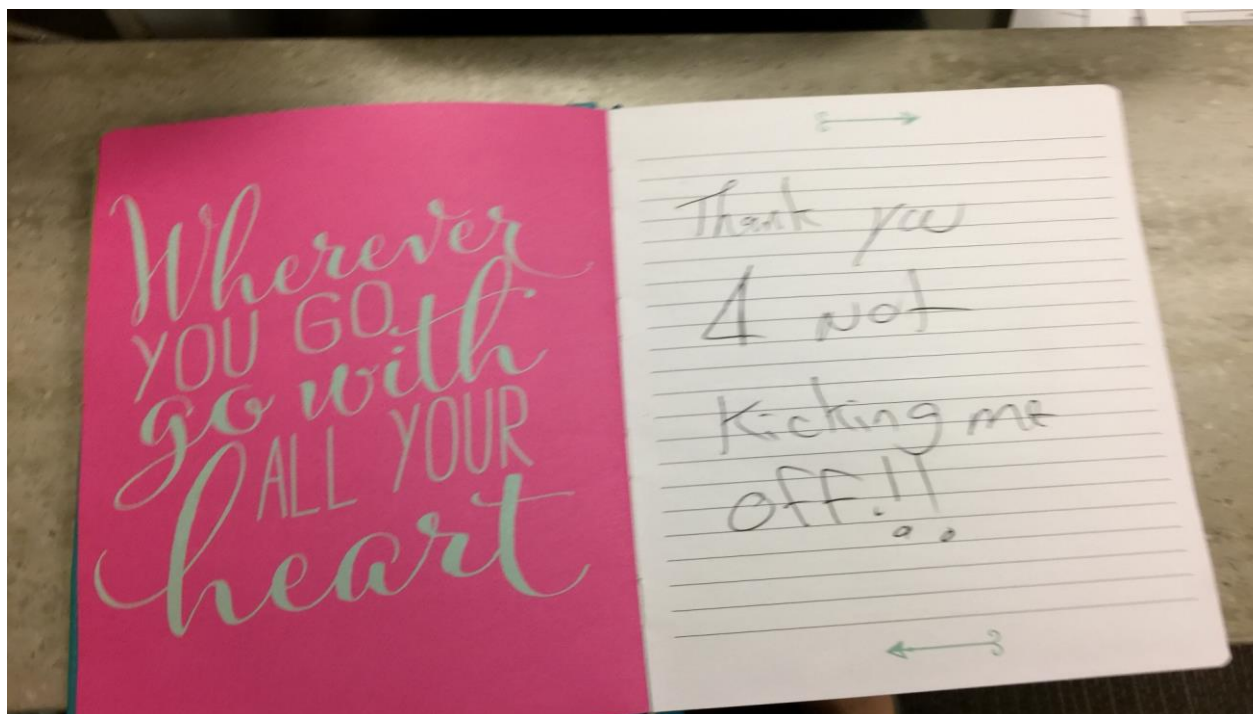 Wherever
YOU GO
go with
ALL YOUR
heart
Thank you
4 not
Kicking me
off!!!